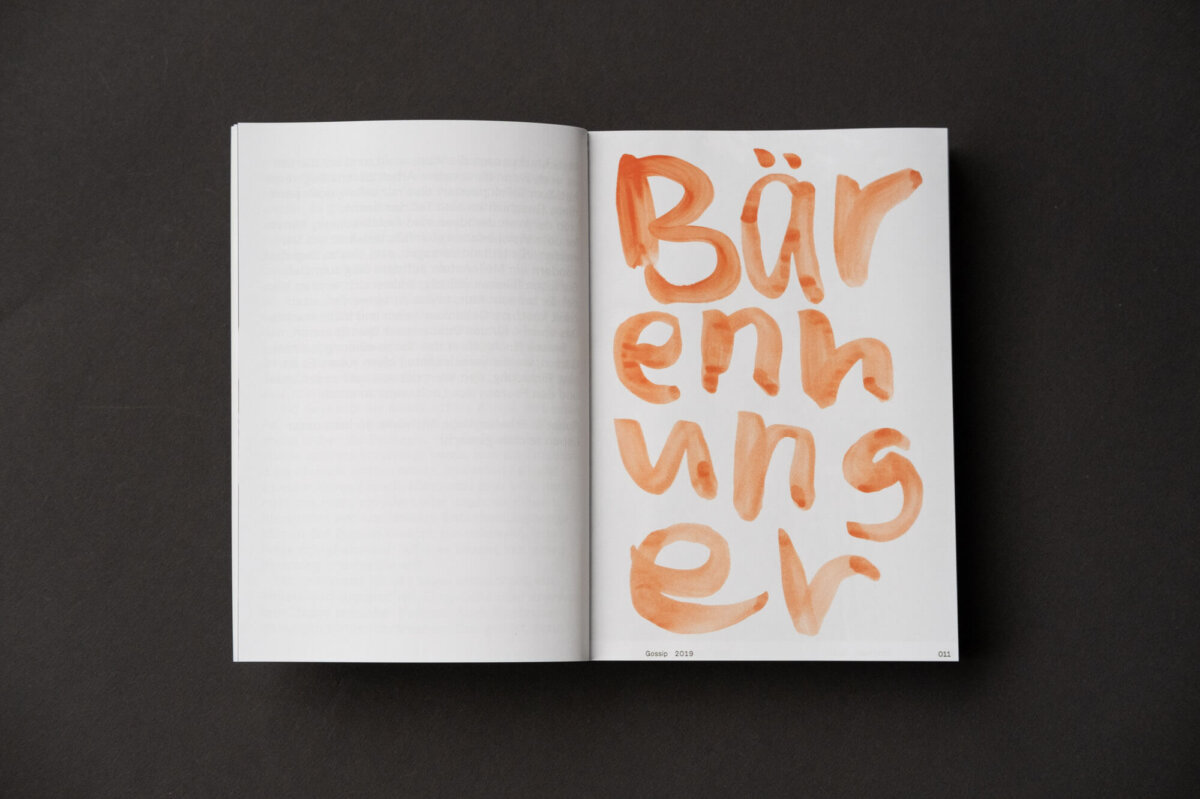 Bär
enh
ung
er
Gossip 2019
011